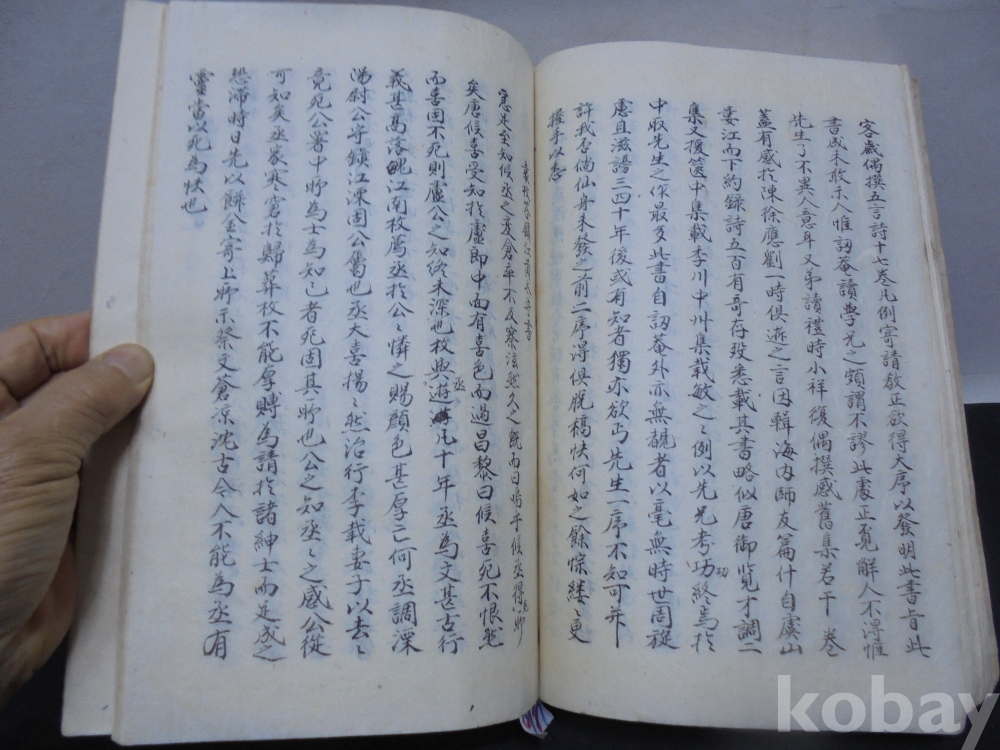 客歲偶撰五言詩十七卷凡例寄請敎正欲得大序以發明此書旨此
書成未敢示人惟訒菴讀學先之頗謂不謬此處正覓解人不得惟
先生了不異人意耳又弟讀禮時小祥後偶撰感舊集若干卷
蓋有感於陳徐應劉一時俱逝之言因輯海內師友篇什自虞山
婁江而下約錄詩五百有奇存歿悉載其書略似唐御覽才調二
集又援篋中集載季川中州集載敏之之例以先兄考功終焉於
中取先生之作最多此書自訒菴外亦無觀者以毫無時世周旋
慮且滋謗三四十年後或有知者獨亦欲丐先生一序不知可并
許我否倘仙舟未發之前二序得俱脫稿快何如之餘悰縷縷更
握手以悉
憲先至知候丞之變倉卒不及察泫然久之旣而曰嗚乎候丞得死所
矣唐候喜受知於盧郎中而有喜色而過昌黎曰候喜死不恨然
而喜固不死則盧公之知終未深也枚與丞遊凡十年丞爲文甚古行
義甚高落魄江南枚薦丞於公公憐之賜顏色甚厚亡何丞調溧
陽尉公守鎮江溧固公屬也丞大喜揚揚然治行李載妻子以去去
竟死公署中所爲士爲知己者死固其所也公之知丞丞之感公從
可知矣丞家寒窘於歸葬枚不能厚賻爲請於諸紳士而足成之
恐滯時日先以餘金寄上所示祭文倉凉沈古令人不能爲丞有
靈當以死爲快也